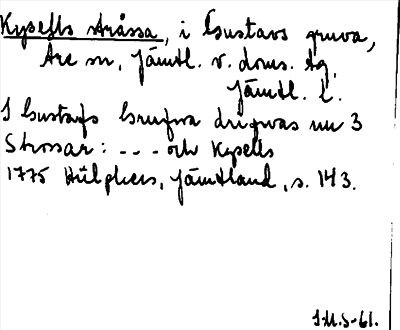 Kysells stråssa, i Gustavs gruva,
Åre sn, Jämtl. v. doms. tg,
Jämtl. l.
I Gustafs Grufva drifwas nu 3
Strossar: - - - och Kysells
1775 Hülphers, Jämtland, s. 143.
I.M.S-61.